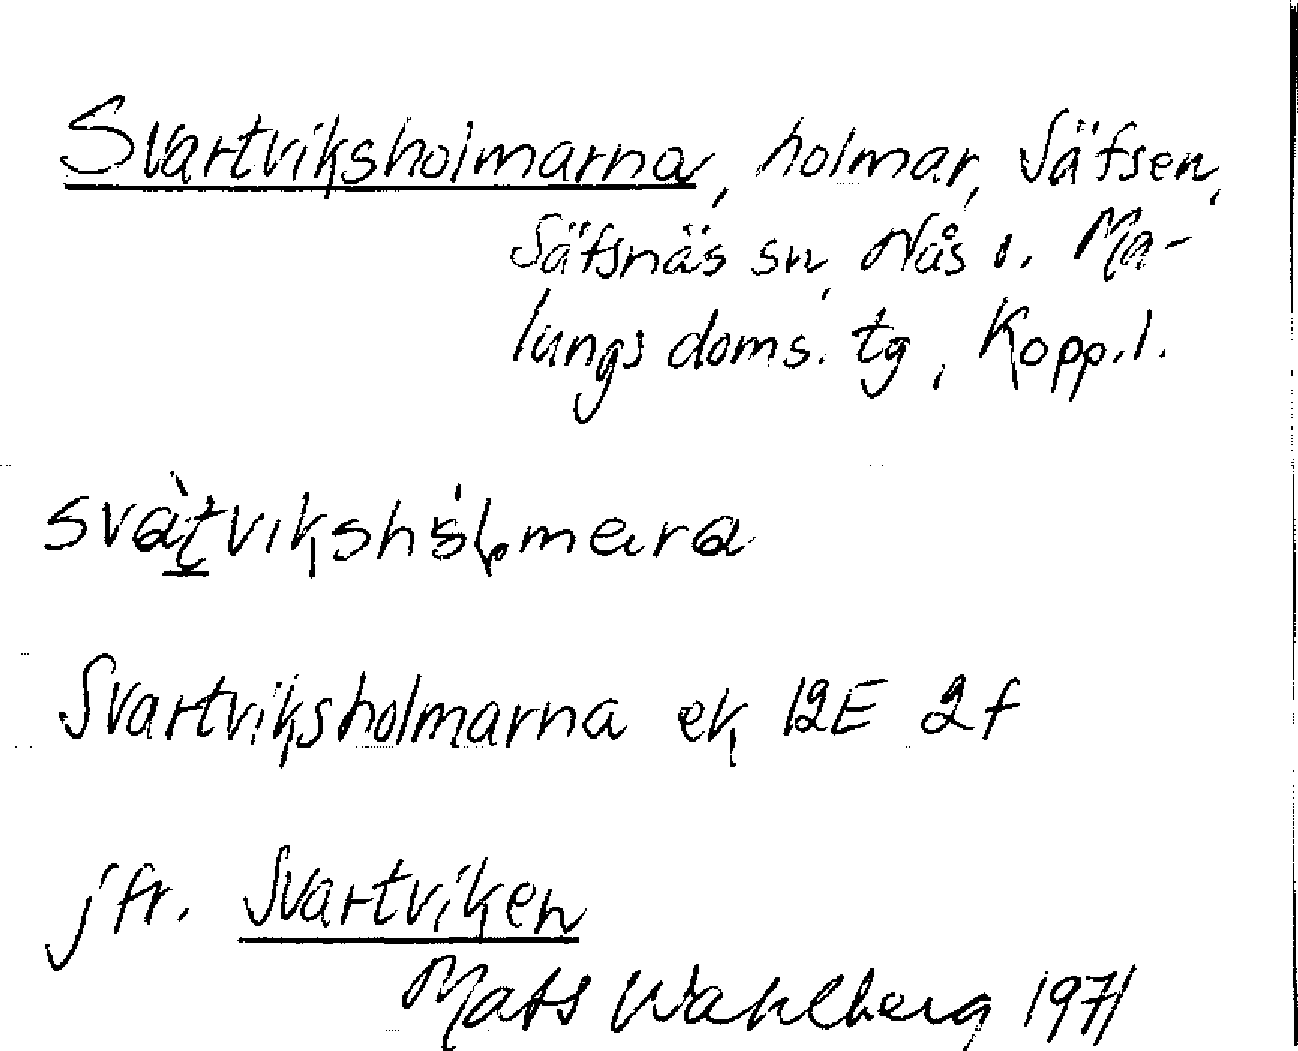 Svartviksholmarna, holmar, Säfsen,
Säfsnäs sn, Nås o. Ma-
lungs doms. tg, Kopp.l.
svàtvikshólmara
Svartviksholmarna ek 12E 2f
jfr. Svartviken
Mats Wahlberg 1971